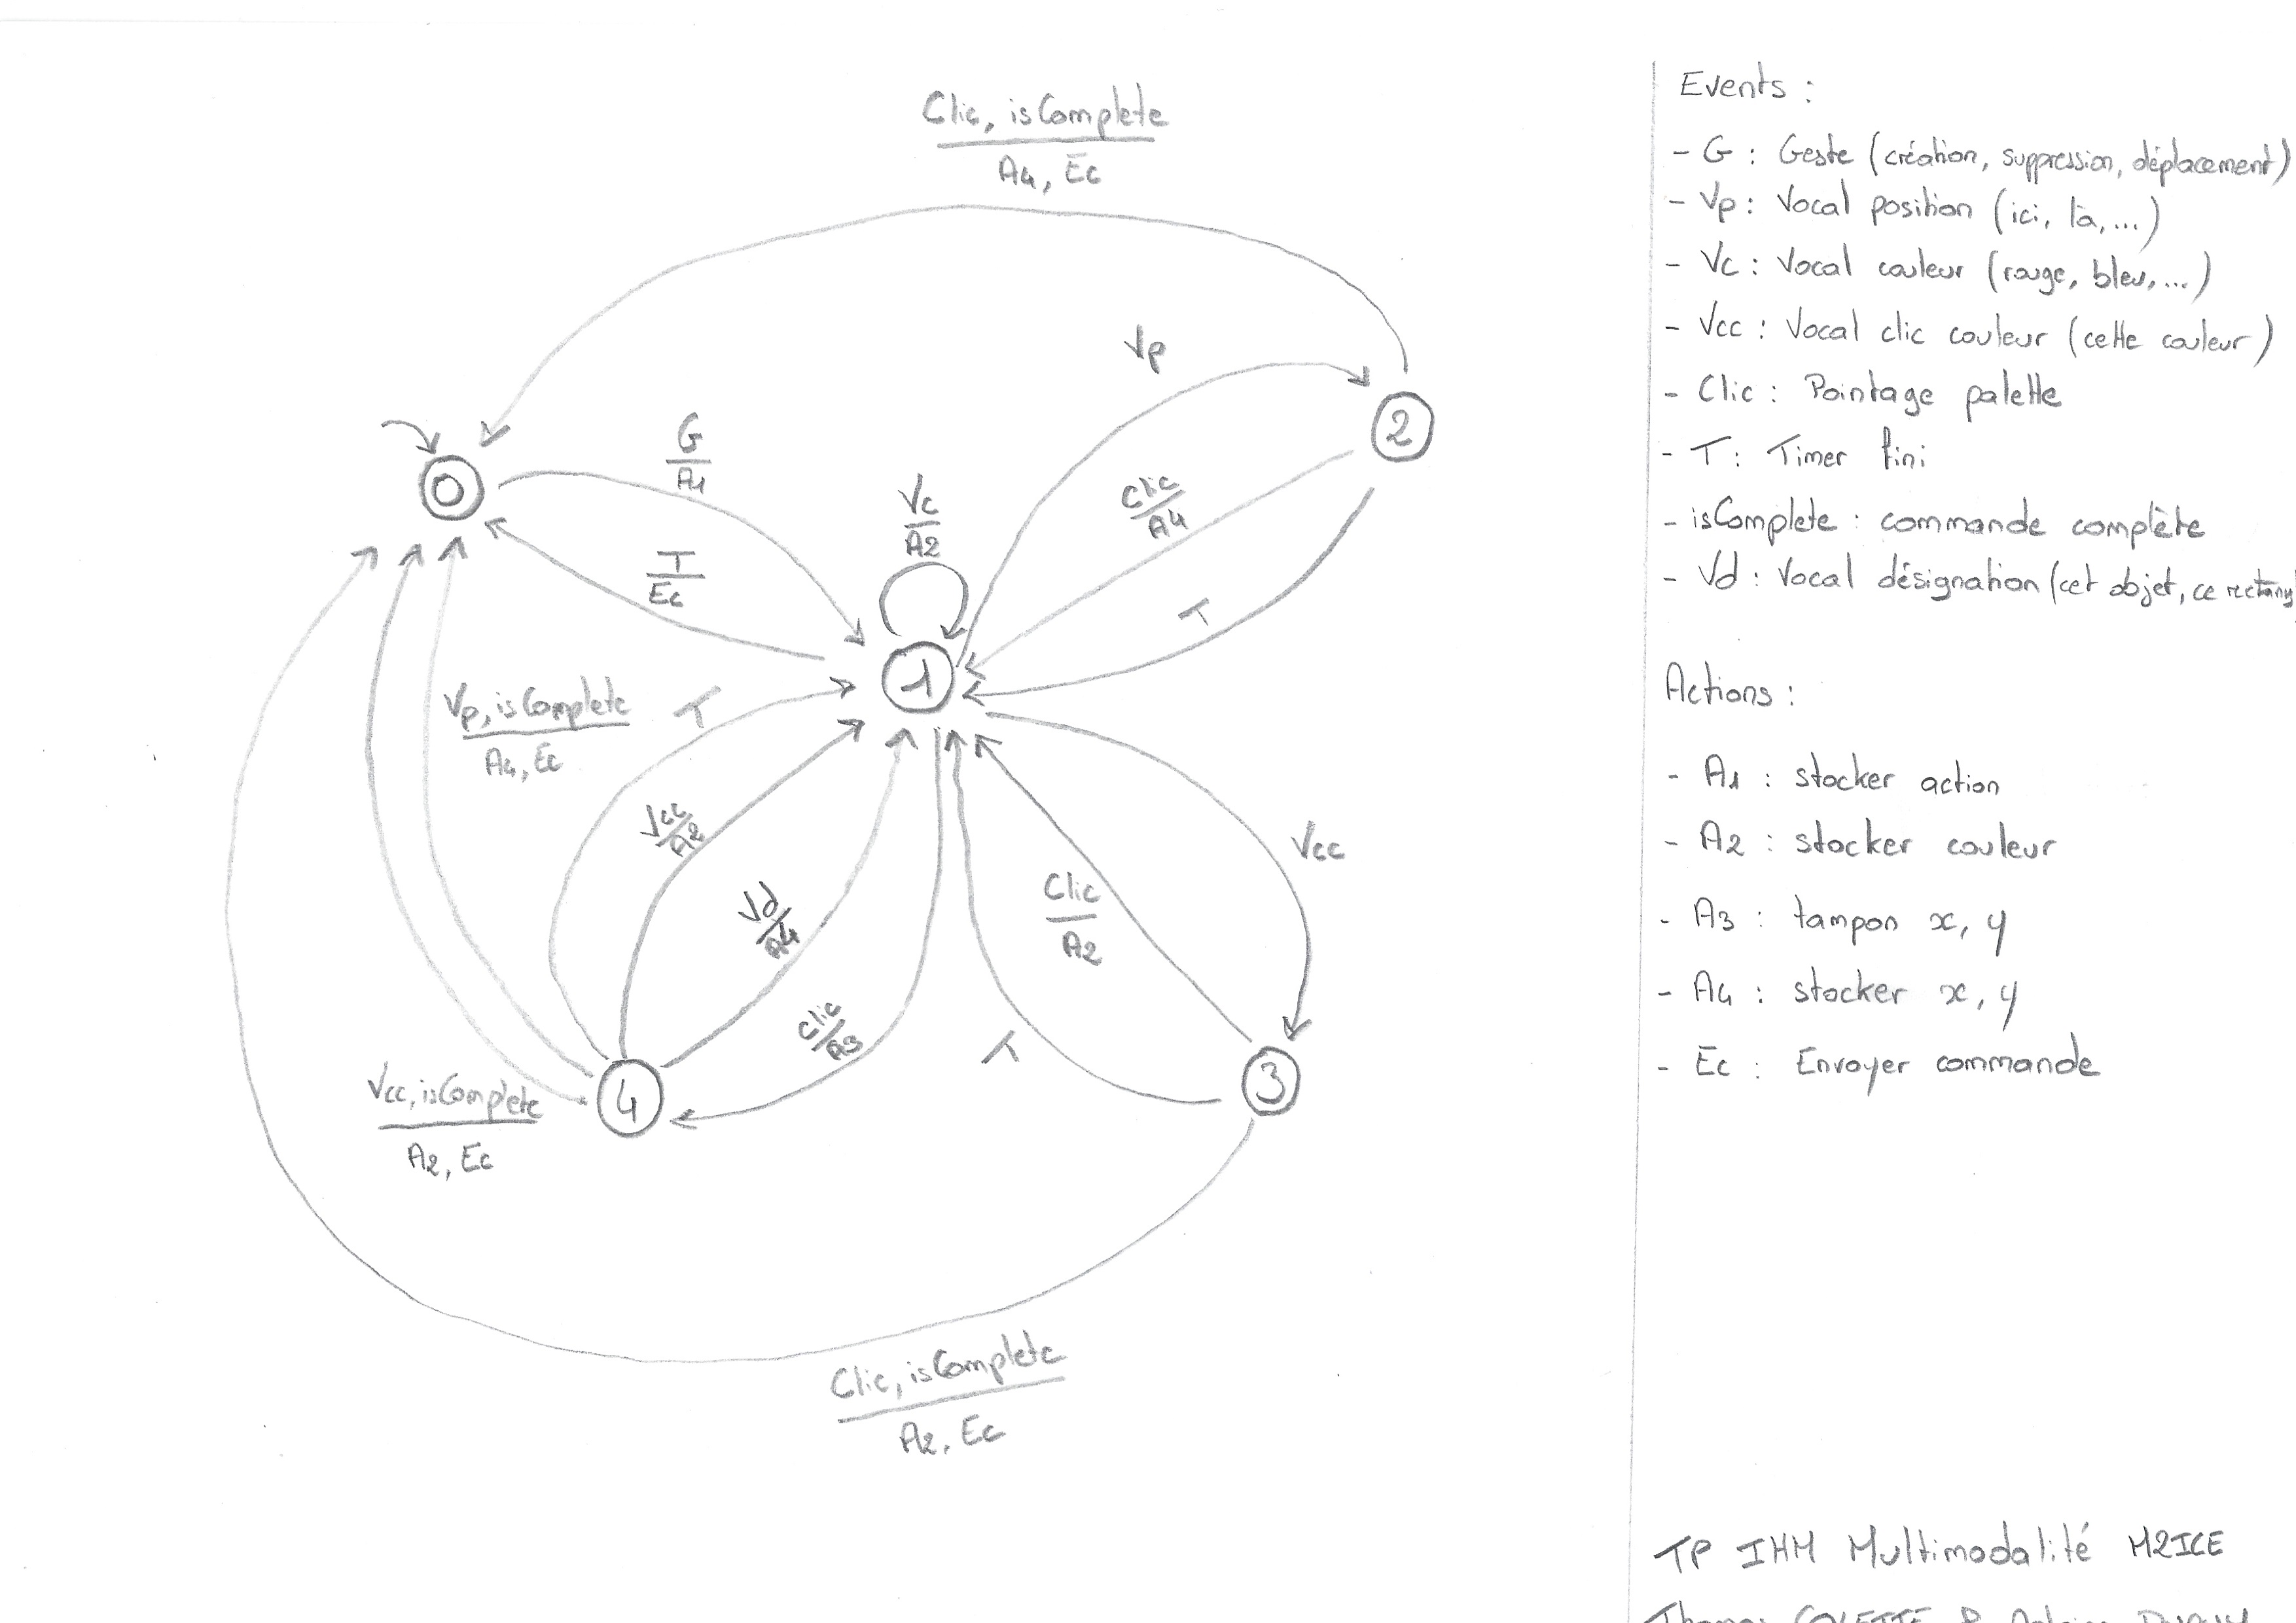 Clic, isComplete
A4, Ec
Vp
2
Clic
A4
T
0
G
A1
T
Ec
Vc
A2
1
Vp, isComplete
A4, Ec
T
Vcc
A2
Vd
A4
Clic
A3
Clic
A2
T
Vcc
3
4
Vcc, isComplete
A2, Ec
Clic, isComplete
A2, Ec
Events :
- G : Geste (création, suppression, déplacement)
- Vp : Vocal position (ici, là,...)
- Vc : Vocal couleur (rouge, bleu,...)
- Vcc : Vocal clic couleur (cette couleur)
- Clic : Pointage palette
- T : Timer fini
- isComplete : commande complète
- Vd : Vocal désignation (cet objet, ce rectang
Actions :
- A1 : stocker action
- A2 : stocker couleur
- A3 : tampon x, y
- A4 : stocker x, y
- Ec : Envoyer commande
TP IHM Multimodalité M2ICE